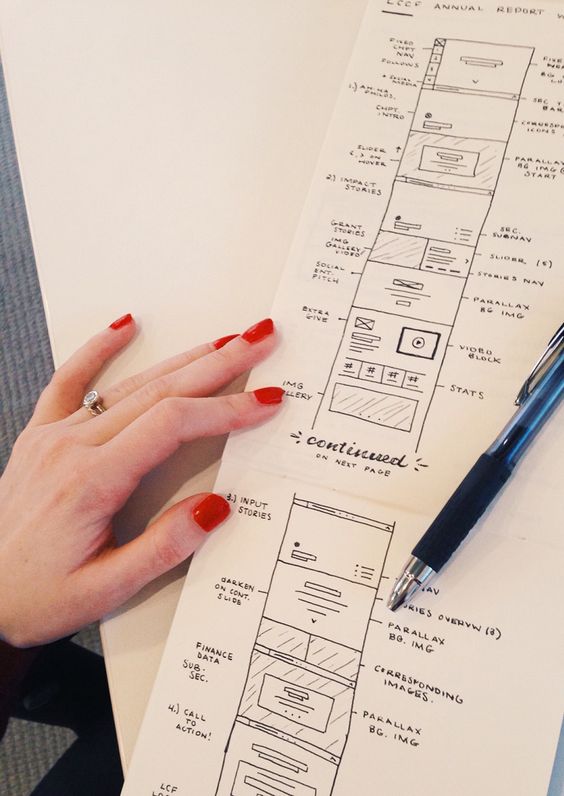 LCCF ANNUAL REPORT
FIXED
CHPT.
NAV
FOLLOWS
+ SOCIAL
MEDIA
1.)
CHPT.
INTRO
SLIDER
<, > ON
HOVER
2.) IMPACT
STORIES
GRANT
STORIES
IMG
GALLERY,
VIDEO
SOCIAL
ENT.
PITCH
EXTRA
GIVE
IMG
BG. IM
SEC T
BAR
CORRESPON
ICONS
PARALLAX
BG IMG
START
SEC.
SUBNAV
SLIDER (5)
STORIES NAV
PARALLAX
BG IMG
VIDEO
BLOCK
# # # #
STATS
continued
ON NEXT PAGE
3.) INPUT
STORIES
DARKEN
ON CONT.
SLIDE
FINANCE
DATA
SUB.
SEC.
4.) CALL
TO
ACTION!
LCF
NAV
ORIES OVERVW (8)
PARALLAX
BG. IMG
CORRESPONDING
IMAGES.
PARALLAX
BG. IMG